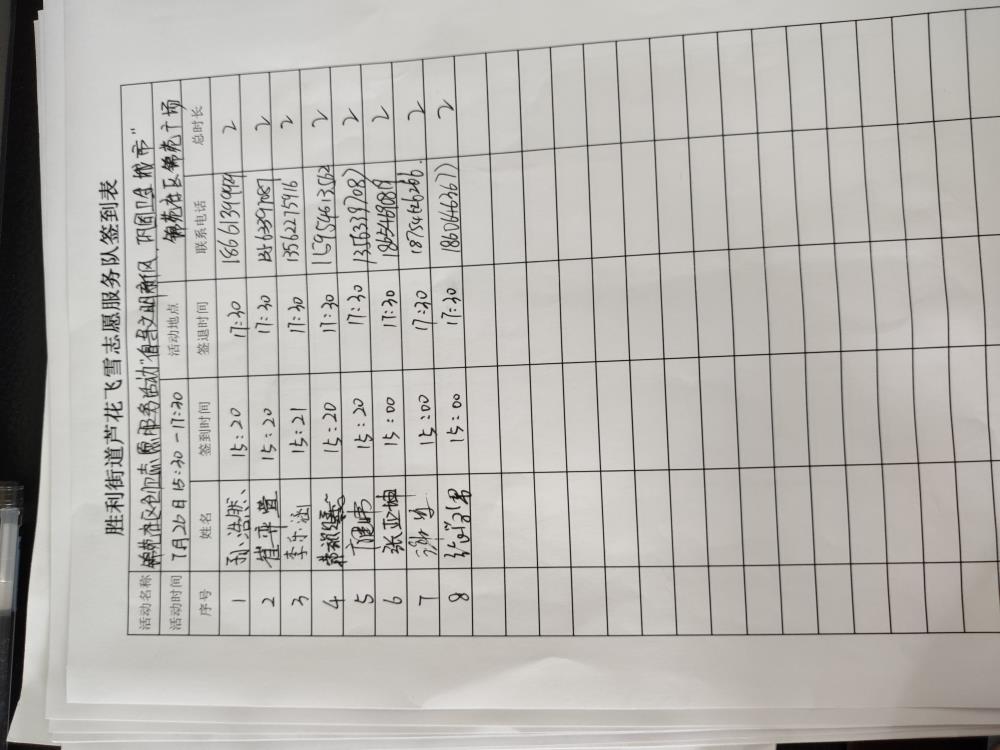 胜利街道芦花飞雪志愿服务队签到表
活动名称 锦苑社区创卫志愿服务活动"倡导文明新风,巩固卫生城市"
活动时间 7月26日15:30-17:30 活动地点 锦苑社区锦苑广场
序号 姓名 签到时间 签退时间 联系电话 总时长
1 孙浩然 15:20 17:30 18661399979 2
2 崔亚萱 15:20 17:30 2
3 李乐涵 15:21 17:30 13562275916 2
4 15:20 17:30 15954613562 2
5 15:20 17:30 13563397087 2
6 张亚楠 15:00 17:30 2
7 谢 15:00 17:30 18754626266 2
8 15:00 17:30 18606463677 2